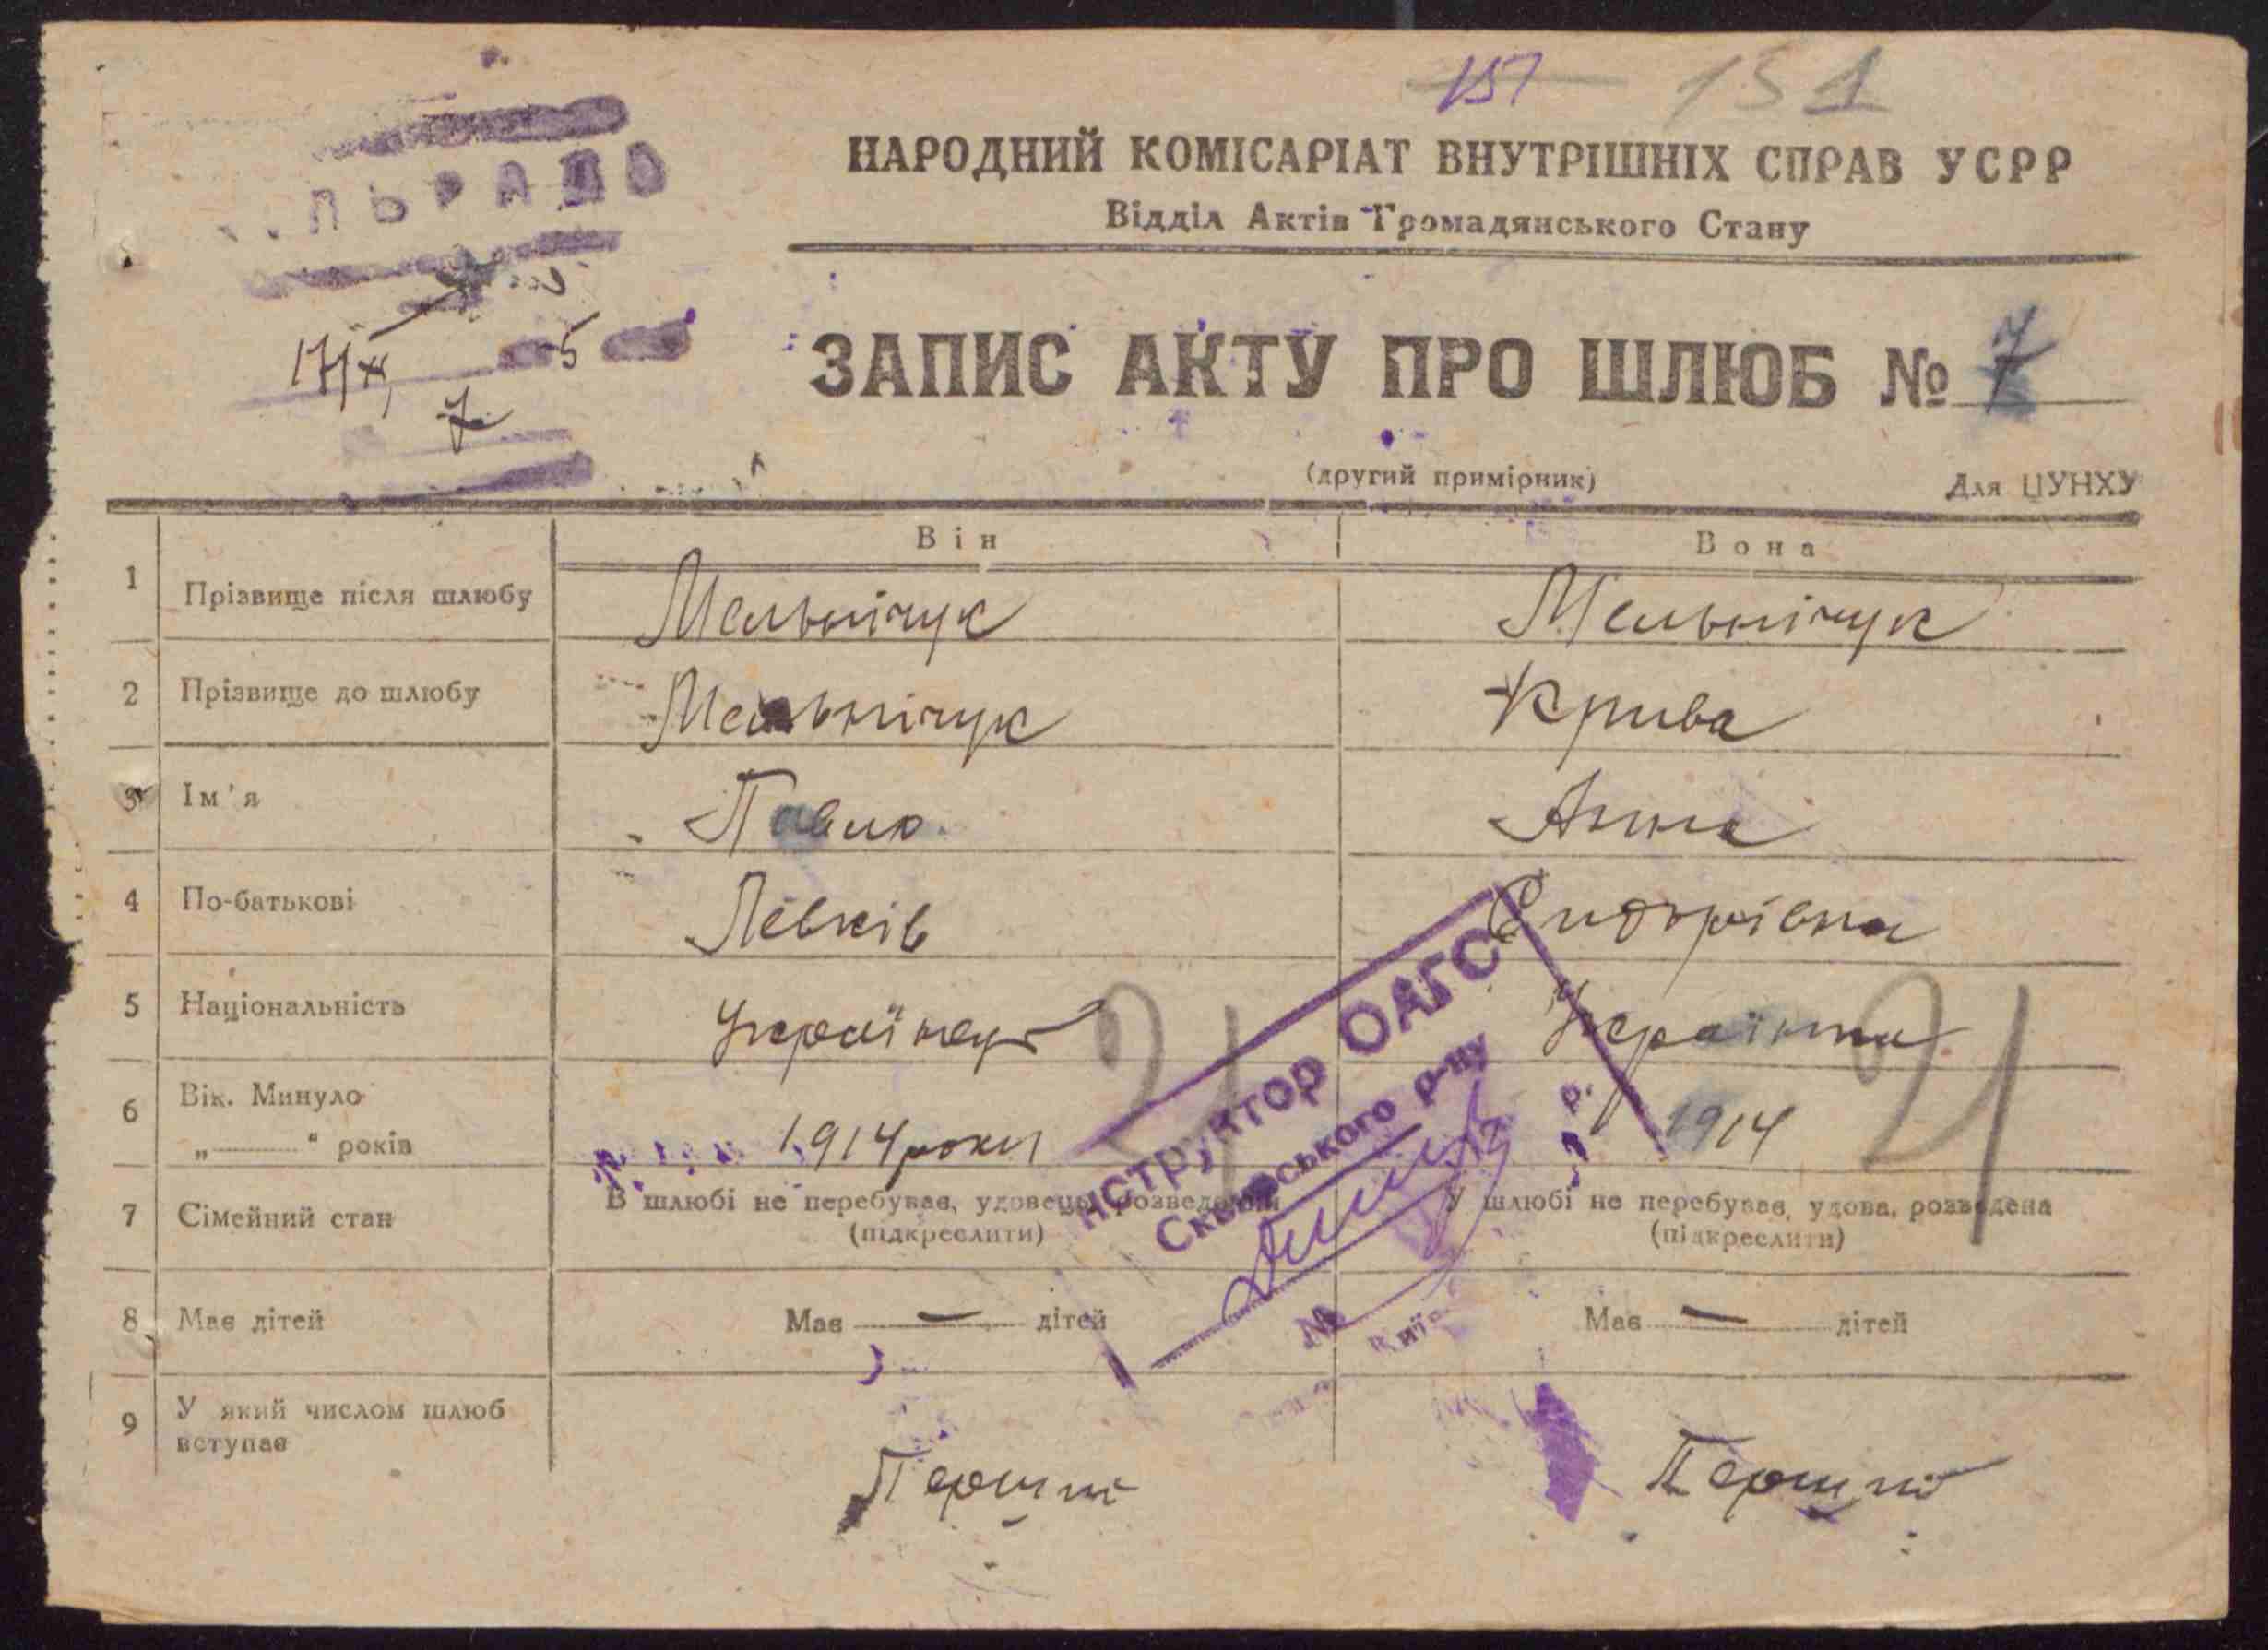 157 151
НАРОДНИЙ КОМІСАРІАТ ВНУТРІШНІХ СПРАВ УСРР
Відділ Актів Громадянського Стану
ЗАПИС АКТУ ПРО ШЛЮБ № 7
(другий примірник) Для ЦУНХУ
Він Вона
1 Прізвище після шлюбу Мельнічук Мельнічук
2 Прізвище до шлюбу Мельнічук Крива
3 Ім'я Павло Анна
4 По-батькові Левків
5 Національність Українець Українка
21 21
6 Вік. Минуло
„ “ років 1914 роки 1914
7 Сімейний стан В шлюбі не перебуває, удовець, розведений У шлюбі не перебуває, удова, розведена
(підкреслити) (підкреслити)
8 Має дітей Має — дітей Має — дітей
9 У який числом шлюб
вступає Перший Перший
нструктор ОАГС
Сквирського р-ну
№